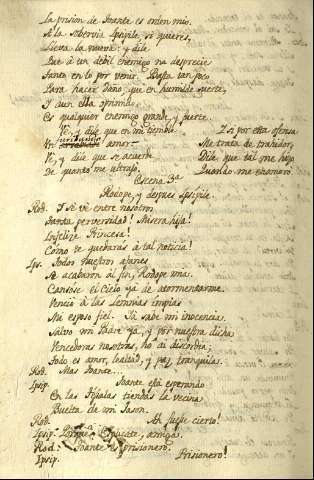 La prision de Toante es orden mio.
A la sobervia Isipile, si quieres,
Lleva la nueva: y dile
Que à un debil enemigo no desprecie
Tanto en lo por venir. Basta tan poco
Para hacer daño, que en humilde suerte,
Y aun oprimido
Es qualquier enemigo grande, y fuerte.
Vé, y dile que en mi tiembla Y si por esta ofensa
Un furibundo amor Me trata de trahidor,
Vé, y dile que se acuerde Dila que tal me hizo
De quanto me ultrajó, Quando me enamoró.
Escena 3ª
Rodope, y despues Isipile.
Rod. Y se vé entre nosotros
Tanta perversidad! Misera hija!
Infelize Princesa!
Como te quedarás à tal noticia!
Isip. Todos nuestros afanes
Se acabaron al fin, Rodope mia.
Cansose el Cielo ya de atormentarme.
Venció à las Lemnias impias
Mi esposo fiel. Ya sabe mi inocencia.
Salvo mi Padre va, y por nuestra dicha
Vencedoras nosotras, no hai discordia;
Todo es amor, lealtad, y paz tranquila.
Rod. Mas Toante...
Isip. Toante está esperando
En las tiendas la vecina
Buelta de mi Jason.
Rod. Ah fuese cierto!
Isip. Explicate, amiga.
Rod. Toante es prisionero.
Isip. Prisionero!